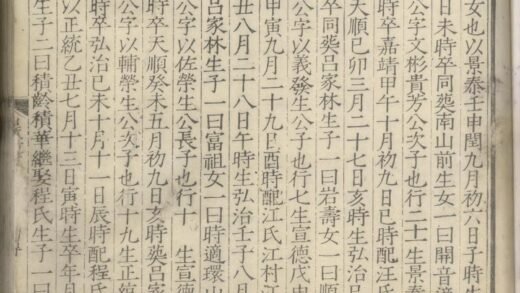 女也以景泰壬申閏九月初六日子時生
日未時卒同葬南山前生女一曰開音適
公字文彬貴芳公次子也行二十一生景泰
時卒嘉靖甲午十月初九日巳時配汪氏
天順己卯三月二十七日亥時生弘治
卒同葬呂家林生子一曰岩壽女一曰順
公字以義發生公子也行七生宣德戊申
甲寅九月二十九日酉時配江氏江村江
丑八月二十八日午時生弘治壬子八月
呂家林生子一曰富祖女一曰時適環山
公字以佐榮生公長子也行十 生宣德
時卒天順癸未五月初九日亥時葬呂家
公字以輔榮生公次子也行十九生正統
時卒弘治己未十月十一日辰時配程氏
以正統乙丑七月十三日寅時生卒年月
生子二曰積齡積華繼娶程氏生子一曰